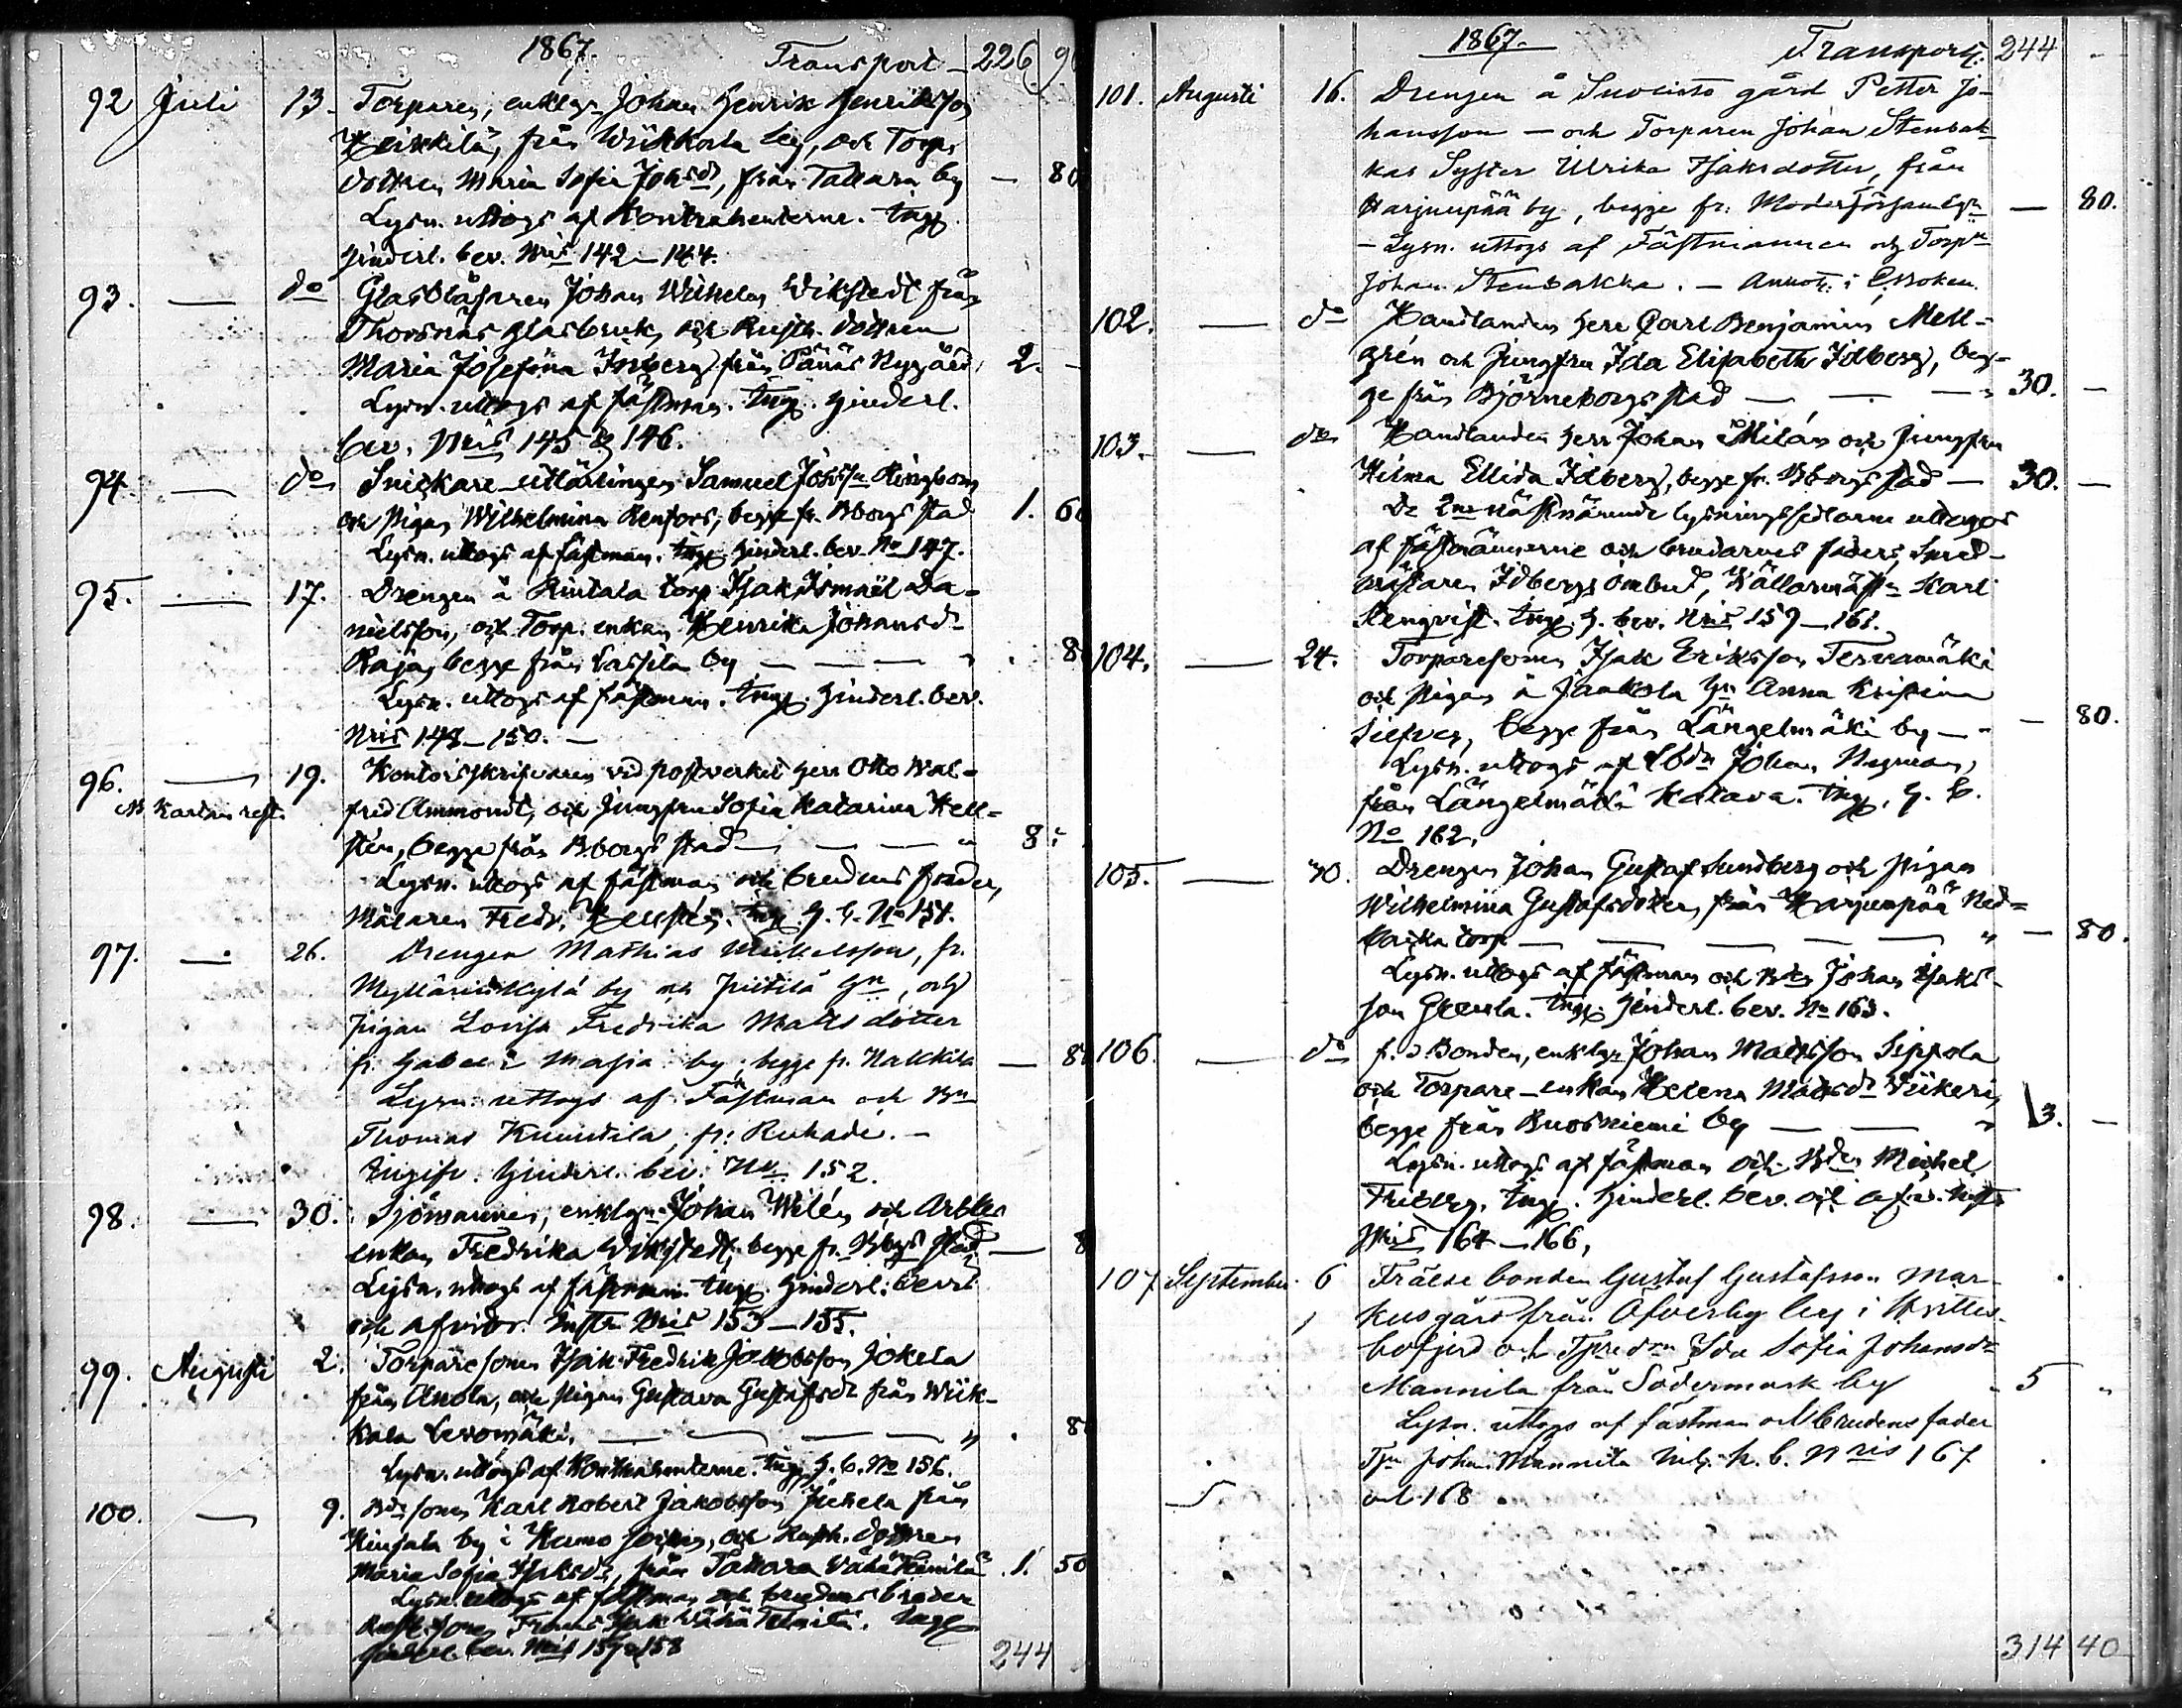 1867. Transport 226 90
92 Juli 13. Torparen, enklgn Johan Henrik Henriksson
Heikkilä, från Wiikkala by, och Torps
dottren Maria Sofia Johsdr, från Tallara by — 80
Lysn. uttogs af Kontrahenterne. Ingg.
hinderl. bev. Nris 142–144.
93. — do Glasblåsaren Johan Wilhelm Wikstedt från
Thorsnäs glasbruk, och Rusth. dottren
Maria Josefina från Påmäs Nygård, 2. –
Lysn. uttogs af fästman. Ingg. hinderl.
bev. Nris 145 & 146.
94. — do Snickare-utlärlingen Samuel Johsn Ringbom
och Pigan Wilhelmina Renfors, begge fr. Bborgs stad 1. 60
Lysn. uttogs af fästman. Ingg. hinderl. bev. No 147.
95. — 17. Drengen å Rintala torp Isak Ismaël Da-
nielsson, och Torp. enkan Henrika Johansdr
Raja, begge från Lassila by — — — 80
Lysn. uttogs af fästman. Ingg. hinderl. bev.
Nris 148–150. —
96. — 19. Kontorsskrifvaren vid postverket Herr Otto Wal-
frid Ammondt, och Jungfru Sofia Katarina Hell-
stén, begge från B.borgs stad — — — " 8:
Lysn. uttogs af fästman och brudens fader,
Målaren Fredr. Hellstén. Ingg. h. b. No 151.
97. — 26. Drengen Mathias Mickelsson, fr.
Myllärinkylä by och Pietilä Gn, och
pigan Lovisa Fredrika Mattsdotter
fr. by, begge fr. Nakkila — 80
Lysn. uttogs af Fästman och Bn
Thomas Knuutila, fr. Ruhade. —
Ingifv. hinderl. bev. No 152.
98. — 30. Sjömannen, enklgn Johan Wilén och Arbks
enkan Fredrika Wikstedt, begge fr. Bbgs stad — 8
Lysn. uttogs af fästman. Ingg. hinderl. bevis
och afvittr. instr. Nris 153–155.
99. Augusti 2. Torparesonen Isak Fredrik Jakobsson Jokela
från Anola, och pigan Gustava Gustafsdr från Wiik-
kala Levomäki. — — — — " 80
Lysn. uttogs af Kontrahenterne. Ingg. h. b. No 156.
100. — 9. Bdesonen Karl Robert Jakobsson från
by i Kumo socken, och Rusth. dottren
Maria Sofia Isaksdr, från Tallara Vähä 1. 50
Lysn. uttogs af fästman och brudens broder
Rusth. sonen Frans Isak Vähä Ingg.
hinderl. bev. Nris 157 & 158
244
1867. Transport. 244 –
101. Augusti 16. Drengen å Suosisto gård Petter Jo-
hansson — och Torparen Johan Stenbak-
kas Syster Ulrika Isaksdotter, från
Harjunpää by, begge fr. Moderförsamlgn — 80.
– Lysn. uttogs af Fästmannen och Torpn
Johan Stenbakka. —
102. — do Handlanden Herr Carl Benjamin Mell-
grén och Jungfru Ida Elisabeth Idberg, beg-
ge från Björneborgs stad — — — 30. —
103. — do Handlanden Herr Johan Milán och Jungfru
Hilma Ellida Idberg, begge fr. Bborgs stad — 30. —
De 2ne näst lysningssedlarne uttogos
af fästmännerne och brudarnes faders,
Idbergs ombud, Källarmäst. Karl
Stenqvist. Ingg. h. bev. Nris 159–161.
104. — 24. Torparesonen Isak Eriksson Tervamäki
och Pigan å Jaakola Gn Anna Kristina
begge från Längelmäki by — – 80.
Lysn. uttogs af Johan Nyman,
från Längelmäki Katava. Ingg. h. b.
No 162.
105. — 30. Drengen Johan Gustaf Sundberg och Pigan
Wilhelmina Gustafsdotter, från Harjunpää Ned-
torp — — — — — " — 80.
Lysn. uttogs af fästman och Bden Johan Isaks-
son Ingg. hinderl. bev. No 163.
106. — do f. d. Bonden, enklgn Johan Mattsson Sippola
och Torpare-enkan Helena Mattsdr Wiikeri,
begge från Ruosniemi by — — 3. —
Lysn. uttogs af fästman och Bden Michel
Friberg. Ingg. hinderl. bev. och afvr. instr.
Nris 164–166.
107 September 6 Frälse bonden Gustaf Gustafsson Mar-
kusgård från Öfverby by i Hvittis-
bofjerd och Ida Sofia Johansdr
Mannila från Södermark by 5 "
Lysn. uttogs af fästman och brudens fader
Johan Mannila. h. b. Nris 167
och 168
314 40